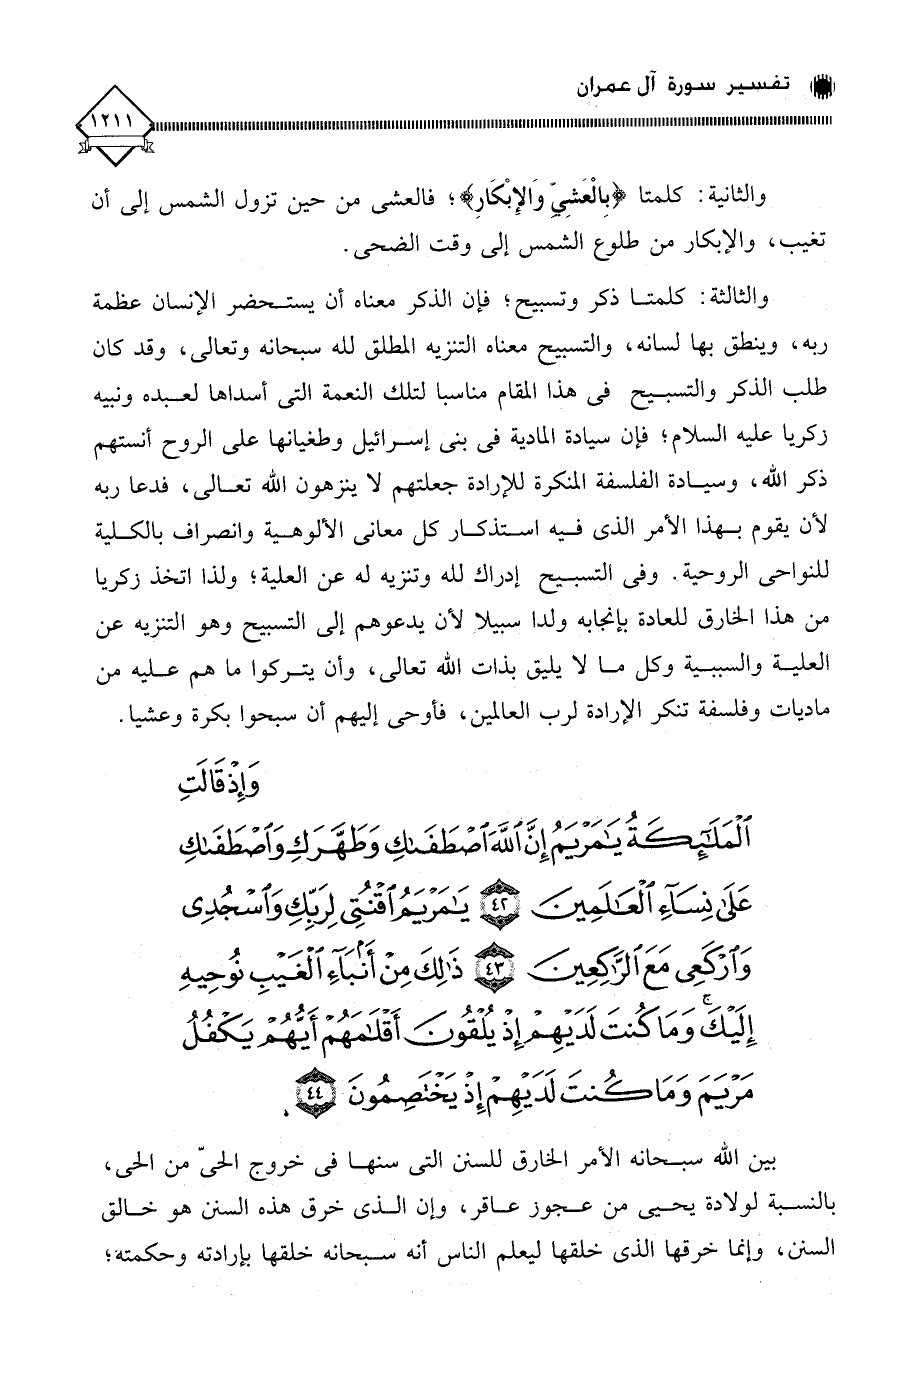 تفسير سورة آل عمران
١٢١١
والثانية: كلمتا ﴿بِالْعَشِيِّ وَالإِبْكَارِ﴾؛ فالعشى من حين تزول الشمس إلى أن
تغيب، والإبكار من طلوع الشمس إلى وقت الضحى.
والثالثة: كلمتا ذكر وتسبيح؛ فإن الذكر معناه أن يستحضر الإنسان عظمة
ربه، وينطق بها لسانه، والتسبيح معناه التنزيه المطلق لله سبحانه وتعالى، وقد كان
طلب الذكر والتسبيح فى هذا المقام مناسبا لتلك النعمة التى أسداها لعبده ونبيه
زكريا عليه السلام؛ فإن سيادة المادية فى بنى إسرائيل وطغيانها على الروح أنستهم
ذكر الله، وسيادة الفلسفة المنكرة للإرادة جعلتهم لا ينزهون الله تعالى، فدعا ربه
لأن يقوم بهذا الأمر الذى فيه استذكار كل معانى الألوهية وانصراف بالكلية
للنواحى الروحية. وفى التسبيح إدراك لله وتنزيه له عن العلية؛ ولذا اتخذ زكريا
من هذا الخارق للعادة بإنجابه ولدا سبيلا لأن يدعوهم إلى التسبيح وهو التنزيه عن
العلية والسببية وكل ما لا يليق بذات الله تعالى، وأن يتركوا ما هم عليه من
ماديات وفلسفة تنكر الإرادة لرب العالمين، فأوحى إليهم أن سبحوا بكرة وعشيا.
وَإِذْ قَالَتِ
ٱلْمَلَٰٓئِكَةُ يَٰمَرْيَمُ إِنَّ ٱللَّهَ ٱصْطَفَىٰكِ وَطَهَّرَكِ وَٱصْطَفَىٰكِ
عَلَىٰ نِسَآءِ ٱلْعَٰلَمِينَ ٤٢ يَٰمَرْيَمُ ٱقْنُتِى لِرَبِّكِ وَٱسْجُدِى
وَٱرْكَعِى مَعَ ٱلرَّٰكِعِينَ ٤٣ ذَٰلِكَ مِنْ أَنۢبَآءِ ٱلْغَيْبِ نُوحِيهِ
إِلَيْكَ ۚ وَمَا كُنتَ لَدَيْهِمْ إِذْ يُلْقُونَ أَقْلَٰمَهُمْ أَيُّهُمْ يَكْفُلُ
مَرْيَمَ وَمَا كُنتَ لَدَيْهِمْ إِذْ يَخْتَصِمُونَ ٤٤ .
بين الله سبحانه الأمر الخارق للسنن التى سنها فى خروج الحىّ من الحى،
بالنسبة لولادة يحيى من عجوز عاقر، وإن الذى خرق هذه السنن هو خالق
السنن، وإنما خرقها الذى خلقها ليعلم الناس أنه سبحانه خلقها بإرادته وحكمته؛